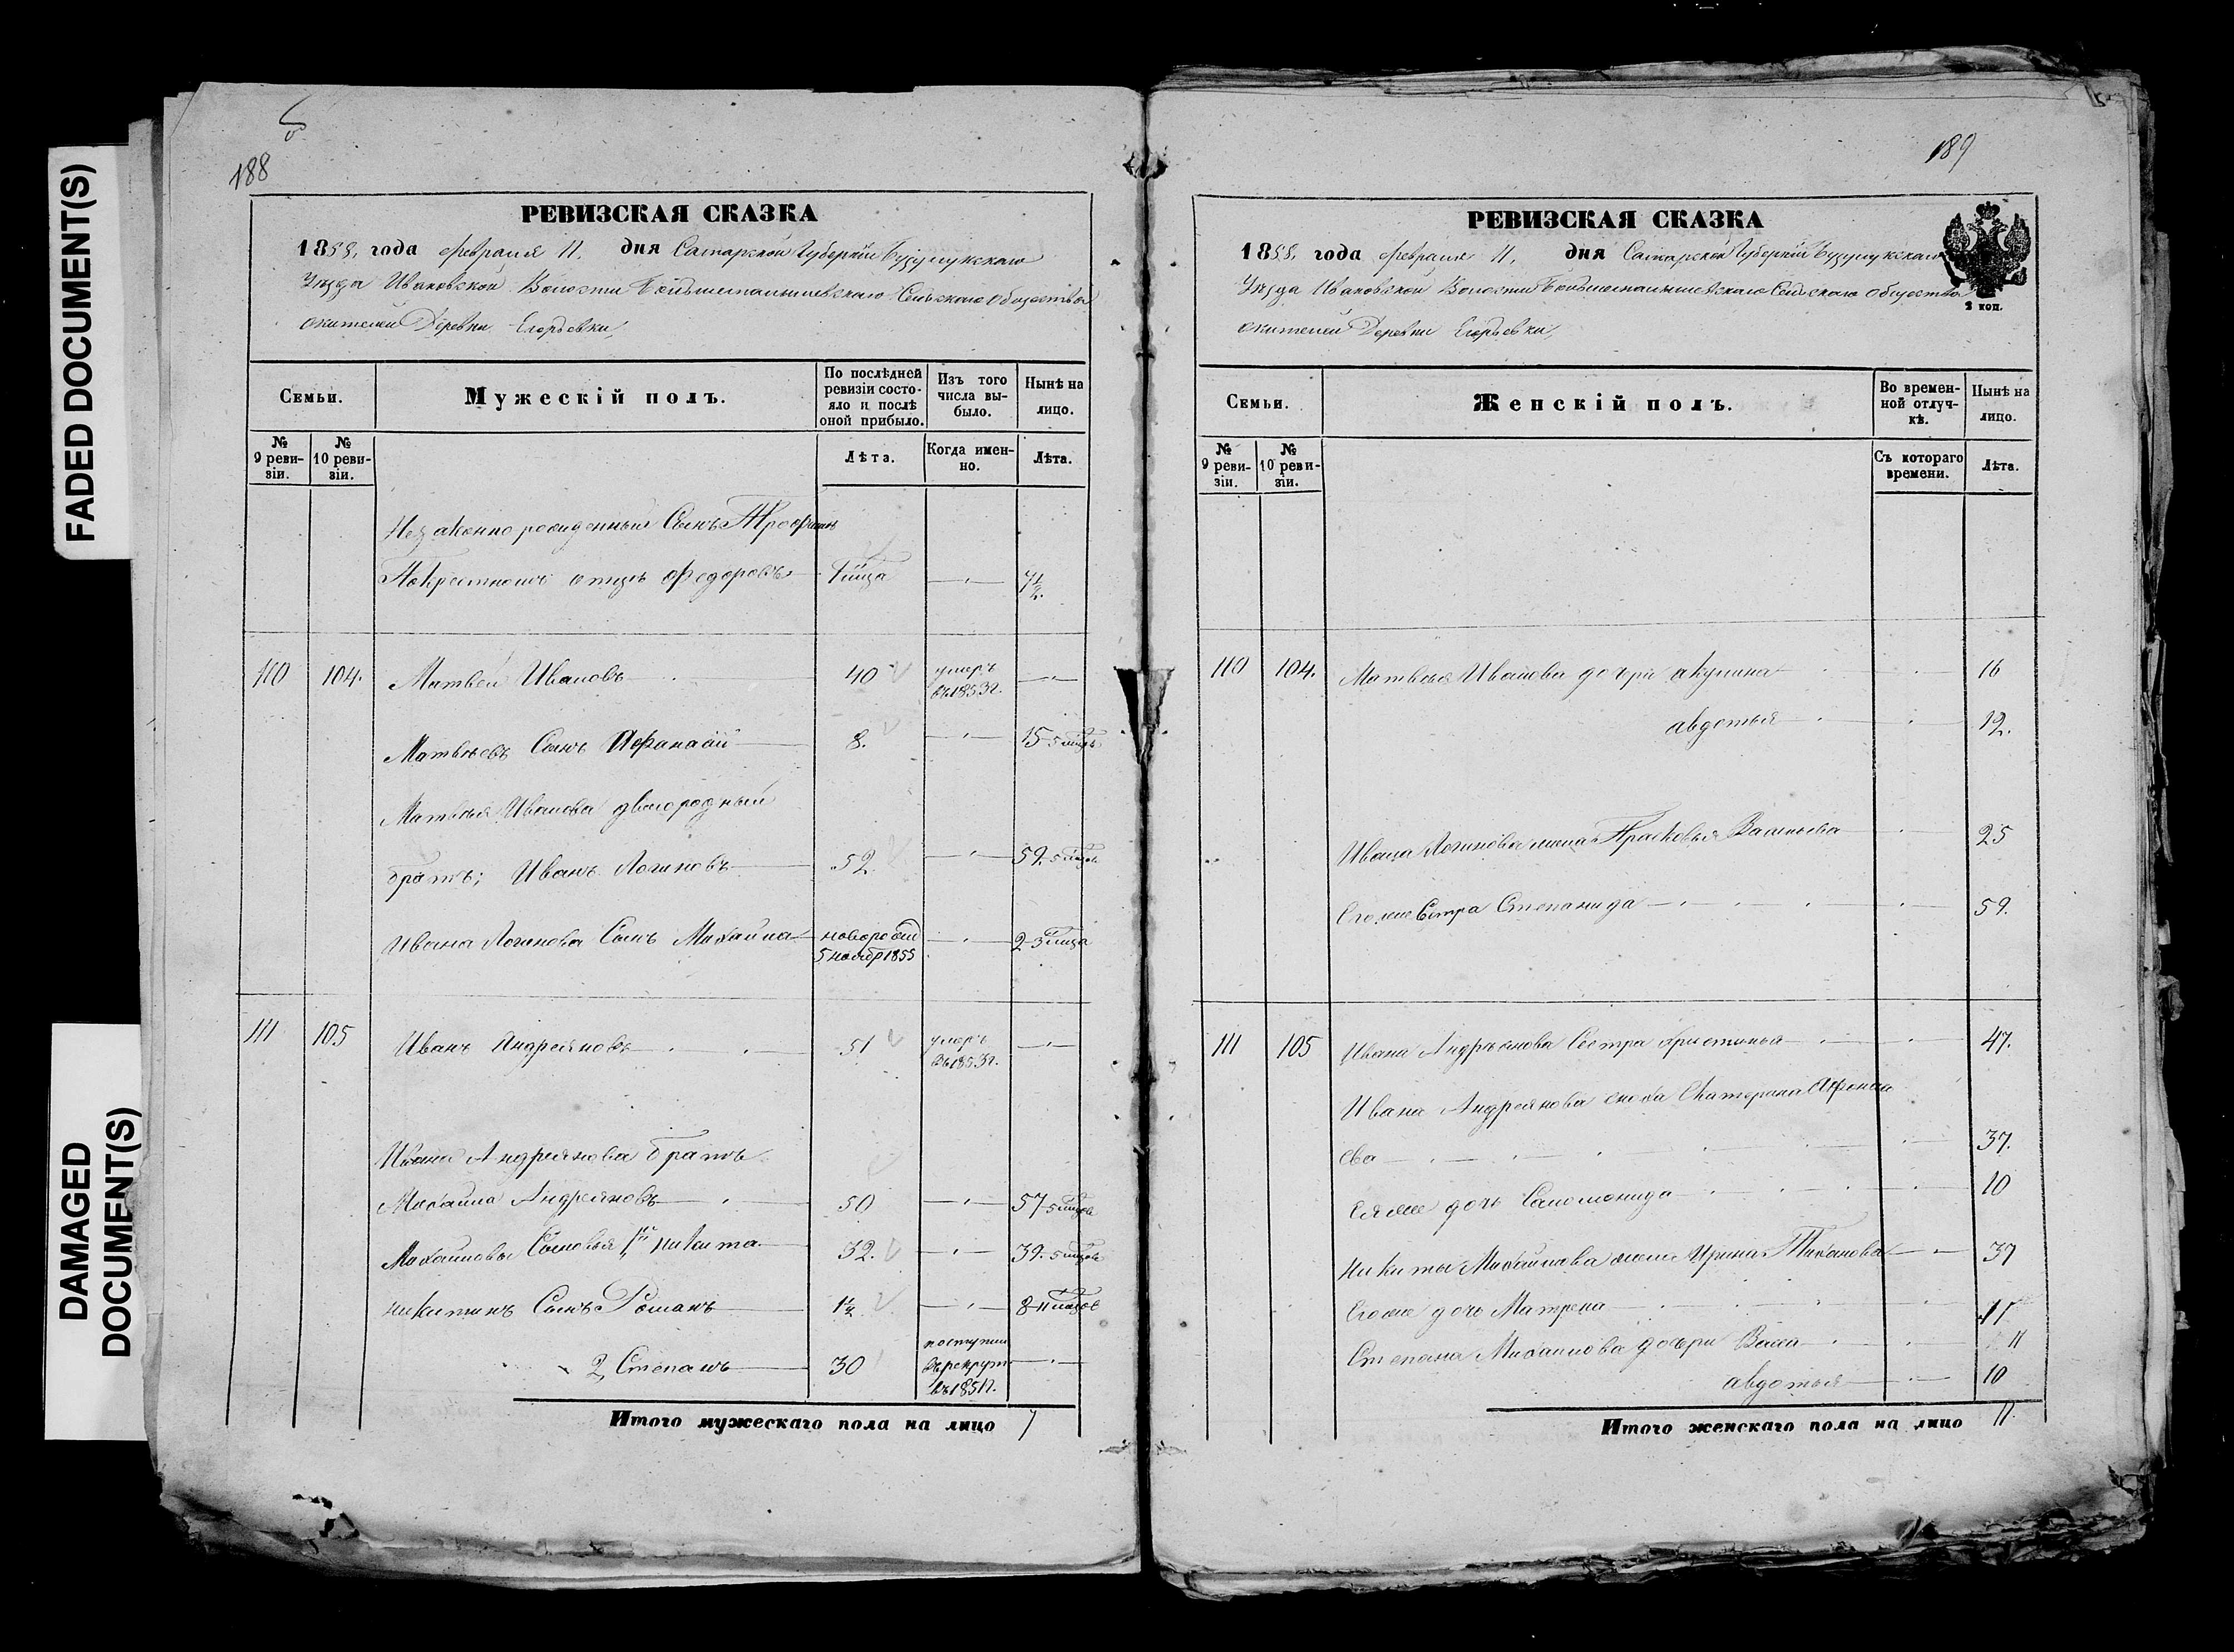 FADED DOCUMENT(S)
DAMAGED
DOCUMENT(S)
188
РЕВИЗСКАЯ СКАЗКА
1858, года февраля 11. дня Самарской Губерніи Бузулукскаго
Уѣзда Ивановской Волости Сельскаго Общества
жителей Деревни Егорьевки,
Семьи.
Мужескій полъ.
По послѣдней ревизіи состояло и послѣ оной прибыло.
Изъ того числа выбыло.
Нынѣ на лицо.
№ 9 ревизіи.
№ 10 ревизіи.
Лѣта.
Когда именно.
Лѣта.
Незаконно рожденный Сынъ Трофимъ
Покрестному отцу Федоровъ
7½.
110 104. Матвей Ивановъ 40 умеръ въ 1853г.
Матвѣевъ Сынъ Афанасий 8. 15-5 мцовъ
Матвѣя Иванова двоюродный
братъ; Иванъ Логиновъ 52 59.5 мцовъ
Ивана Логинова Сынъ Михайла новорожд 5 ноябр 1855 2-3 мца
111 105 Иванъ Андреяновъ 51 умеръ въ 1853г.
Ивана Андреянова братъ
Михайла Андреяновъ 50 57-5 мцовъ
Михайловы Сыновья 1й Никита 32. 39.5 мцовъ
Никитинъ Сынъ Романъ 1½ 8-11 мцовъ
2, Степанъ 30 поступил въ рекрут въ 1851г.
Итого мужескаго пола на лицо 7
189
РЕВИЗСКАЯ СКАЗКА
1858, года февраля 11, дня Самарской Губерніи Бузулукскаго
Уѣзда Ивановской Волости Сельскаго Общества
2 коп.
жителей Деревни Егорьевки,
Семьи.
Женскій полъ.
Во временной отлучкѣ.
Нынѣ на лицо.
№ 9 ревизіи.
№ 10 ревизіи.
Съ котораго времени.
Лѣта.
110 104. Матвея Иванова дочери акулина 16
авдотья 12.
Ивана Логинова жена Прасковья Васильева 25
Его же Сестра Степанида 59.
111 105 Ивана Андреянова Сестра христинья 47.
Ивана Андреянова сноха Катерина Афонась
ева 37.
Ея же дочь Саломонида 10
Никиты Михайлова жена Ирина Тиханова 37
Его же дочь Матрена 17
Степана Михайлова дочери Васса 11
авдотья 10
Итого женскаго пола на лицо 11.